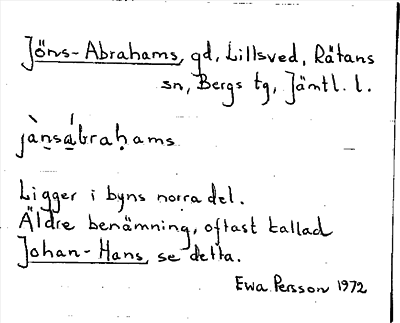 Jöns-Abrahams, gd, Lillsved, Rätans
sn, Bergs tg, Jämtl. l.
jàn̠sá̠braḥams
Ligger i byns norra del.
Äldre benämning, oftast kallad
Johan-Hans, se detta.
Ewa Persson 1972